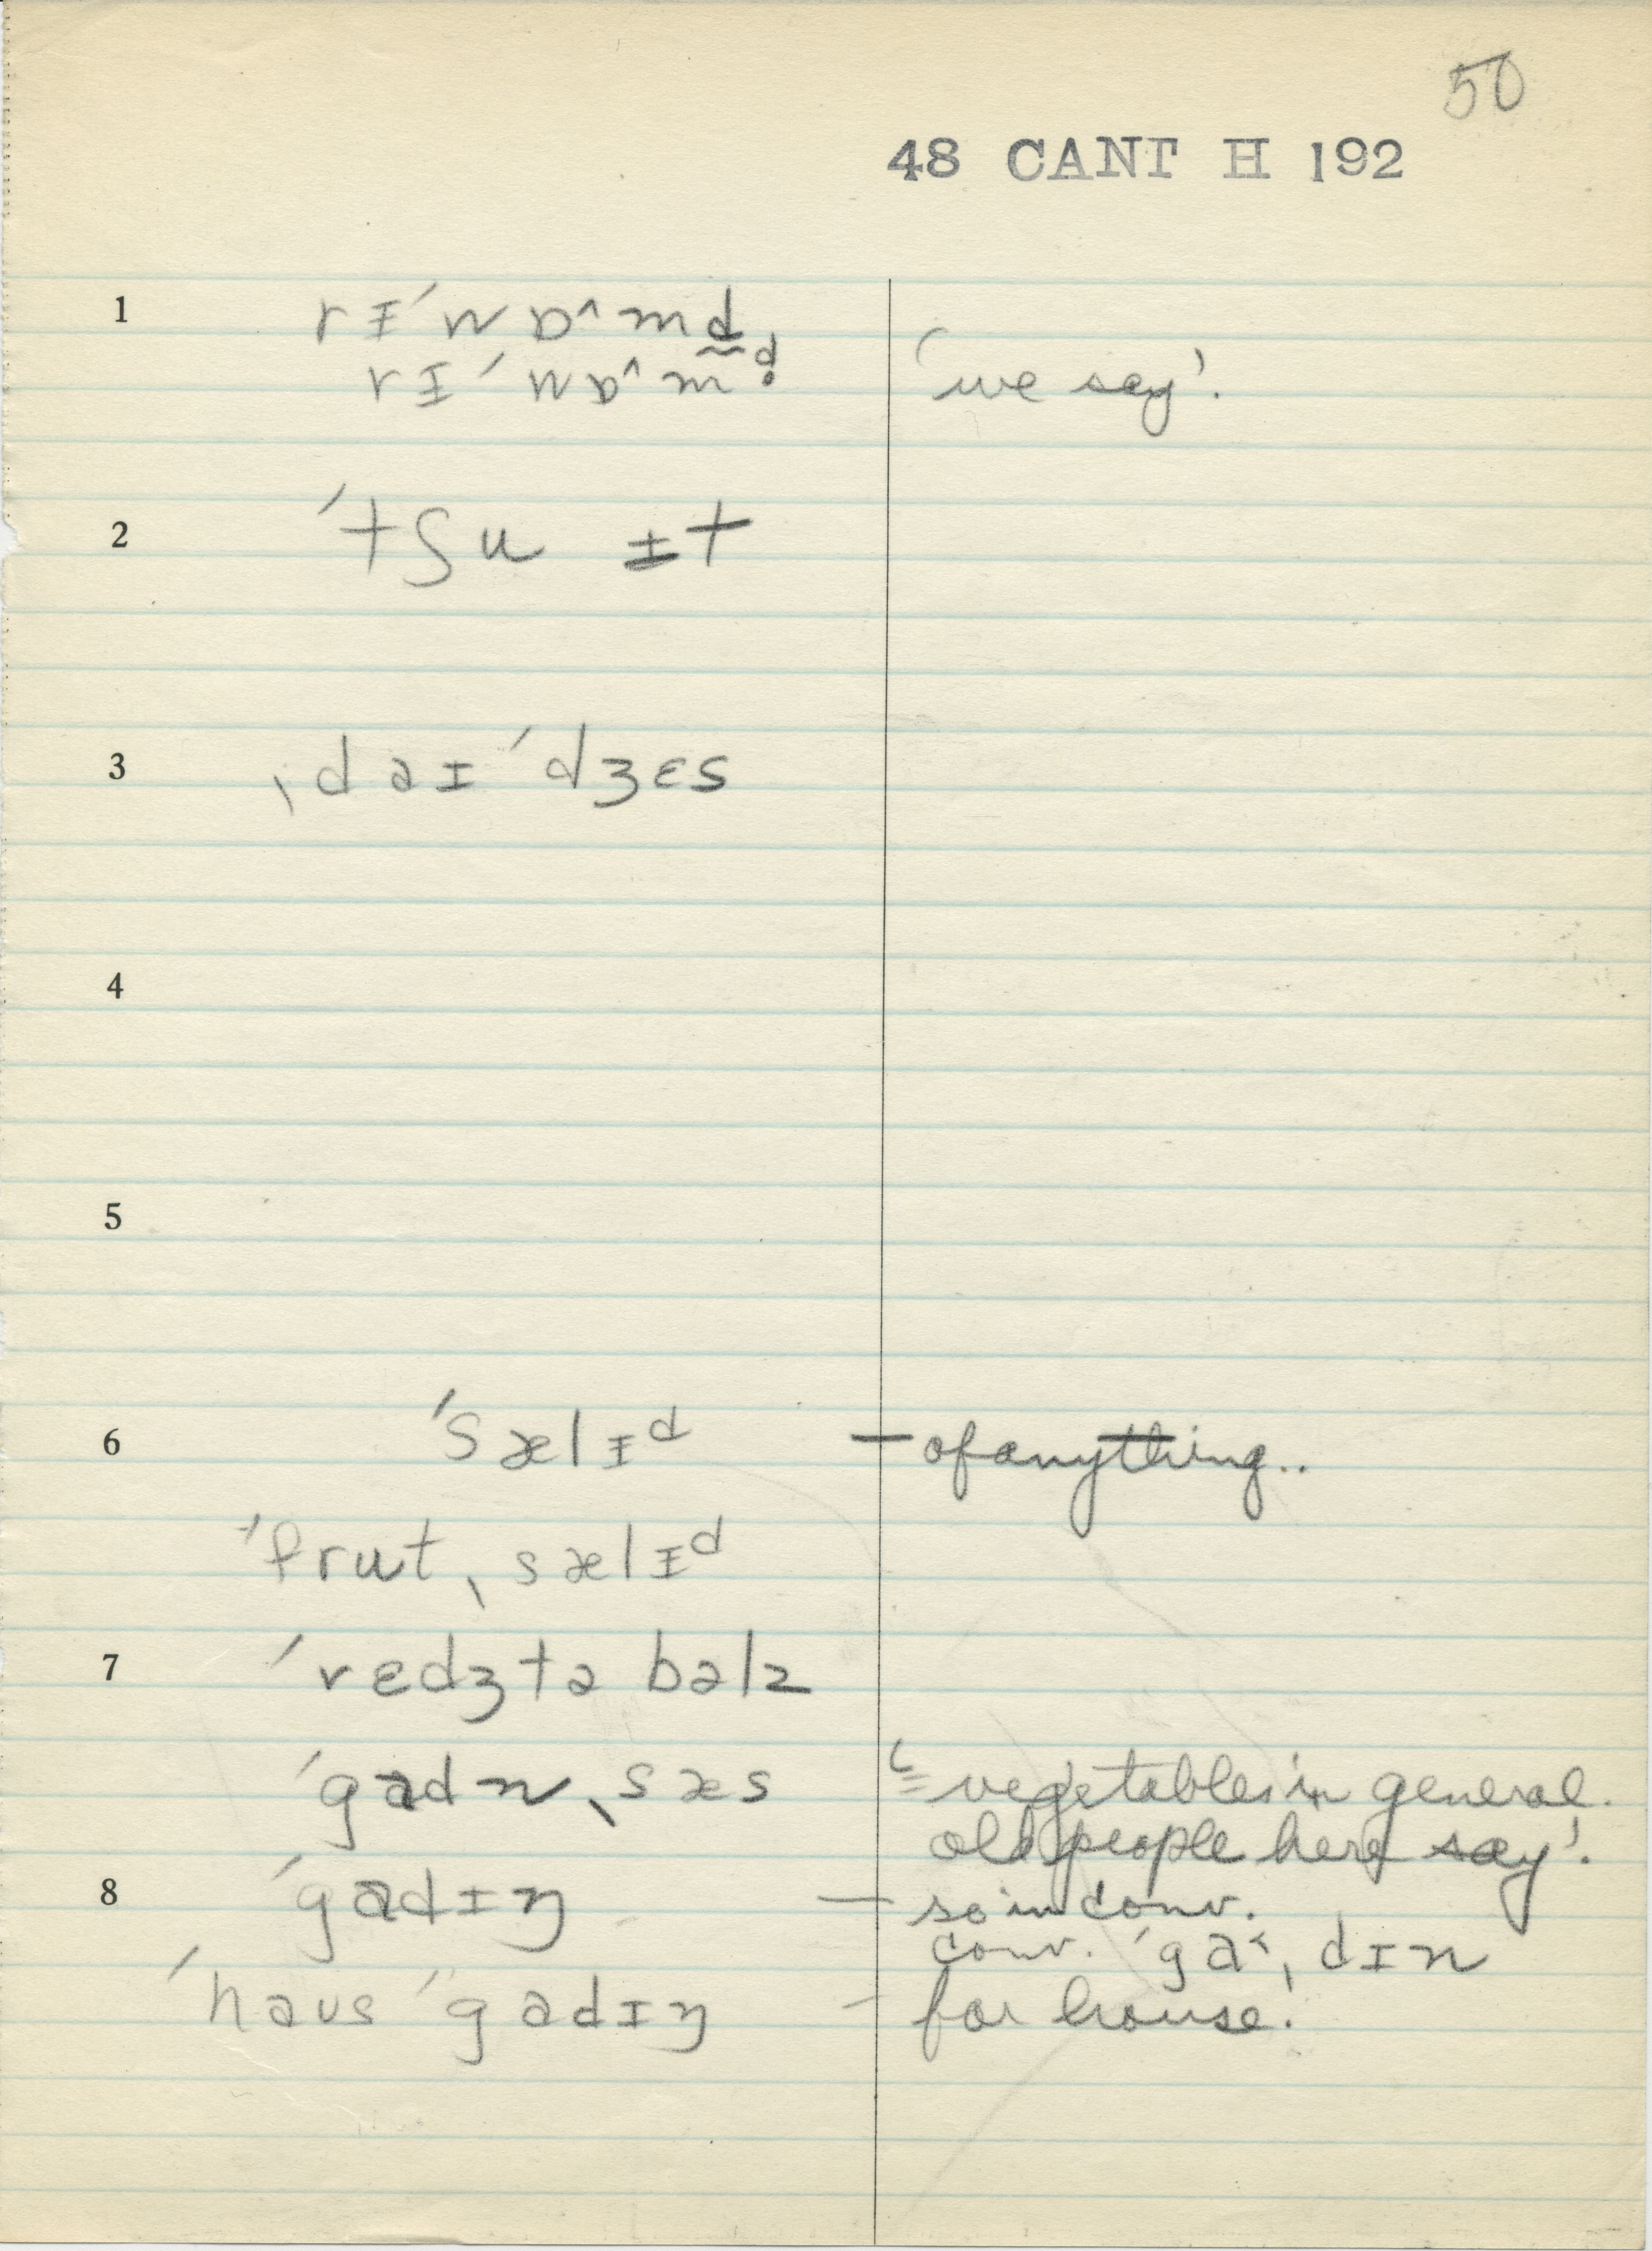 50
48 CANT H 192
1 rɪˈwɒ^md̰
rɪˈwɒ^md̥ 'we say'.
2 ˈtʃu ɪt
3 ˌdaɪˈdʒɛs
4
5
6 ˈsælɪᵈ — of anything..
ˈfrutˌsælɪᵈ
7 ˈvɛdʒtəbəlz
ˈgadnˌsæs '= vegetables in general.
old people here say'.
8 ˈgadɪŋ — so in conv.
conv. ˈga˂ˌdɪn
ˈhaʊsˈˈgadɪŋ — for house.'